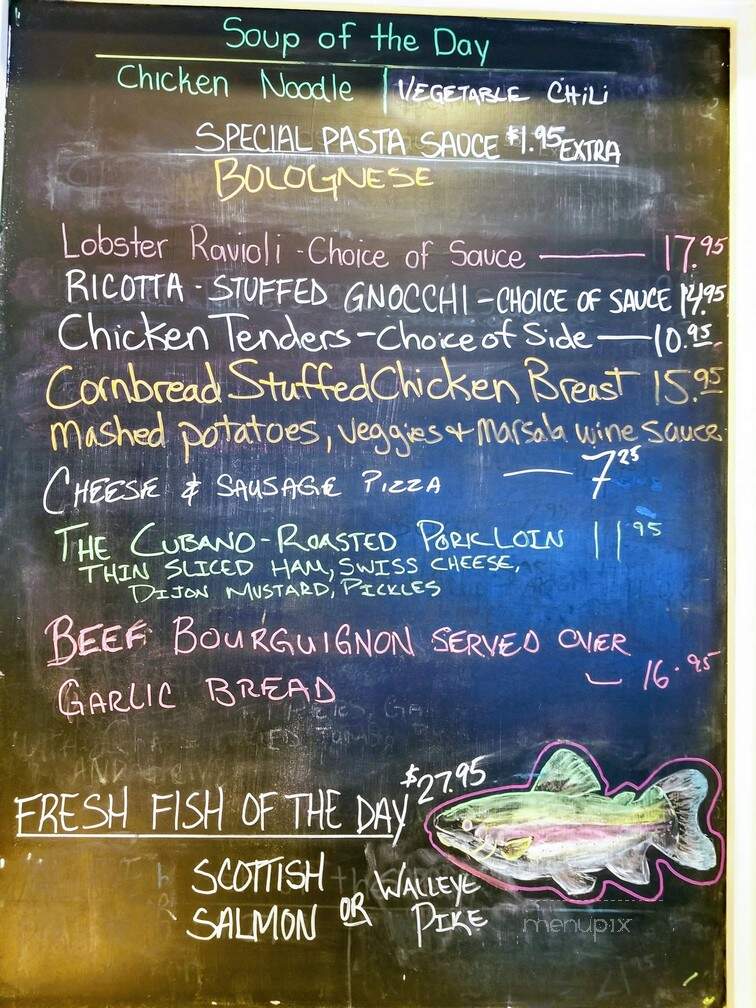 Soup of the Day
Chicken Noodle | VEGETABLE CHILI
SPECIAL PASTA SAUCE $1.95 EXTRA
BOLOGNESE
Lobster Ravioli - Choice of Sauce — 17.95
RICOTTA - STUFFED GNOCCHI - CHOICE OF SAUCE 14.95
Chicken Tenders - Choice of Side — 10.95
Cornbread Stuffed Chicken Breast 15.95
mashed potatoes, veggies + Marsala wine sauce
CHEESE & SAUSAGE PIZZA — 7.25
THE CUBANO - ROASTED PORK LOIN 11.95
THIN SLICED HAM, SWISS CHEESE,
DIJON MUSTARD, PICKLES
BEEF BOURGUIGNON SERVED OVER
GARLIC BREAD — 16.95
FRESH FISH OF THE DAY $27.95
SCOTTISH SALMON OR WALLEYE PIKE
menupix